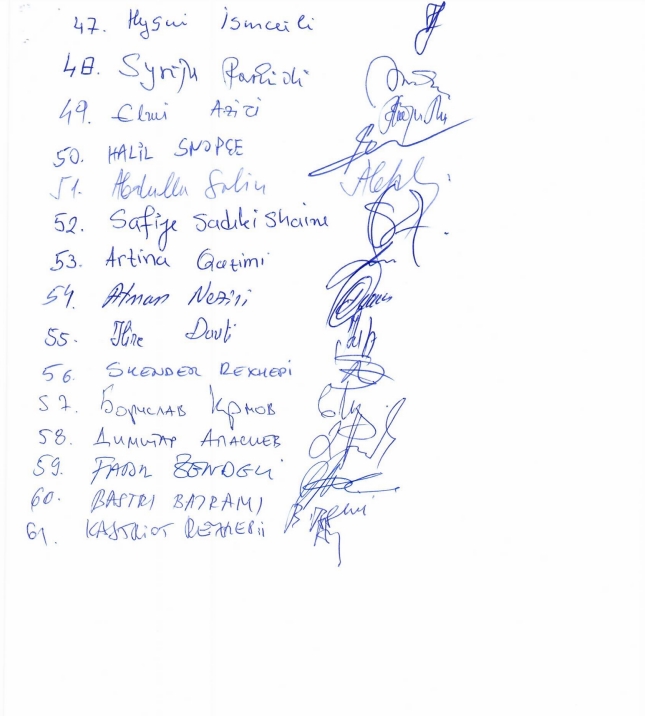 47. Hysni Ismaili
48. Syrija Rashidi
49. Elmi Azizi
50. HALIL SNOPÇE
51. Abdulla Saliu
52. Safije Sadiki Shaini
53. Artina Qazimi
54. Atnan Neziri
55. Ilire Dauti
56. SKENDER REXHEPI
57. БОРИСЛАВ КРМОВ
58. ДИМИТАР АПАСИЕВ
59. FADIL ZENDELI
60. BASTRI BAJRAMI
61. KASTRIOT REXHEPI